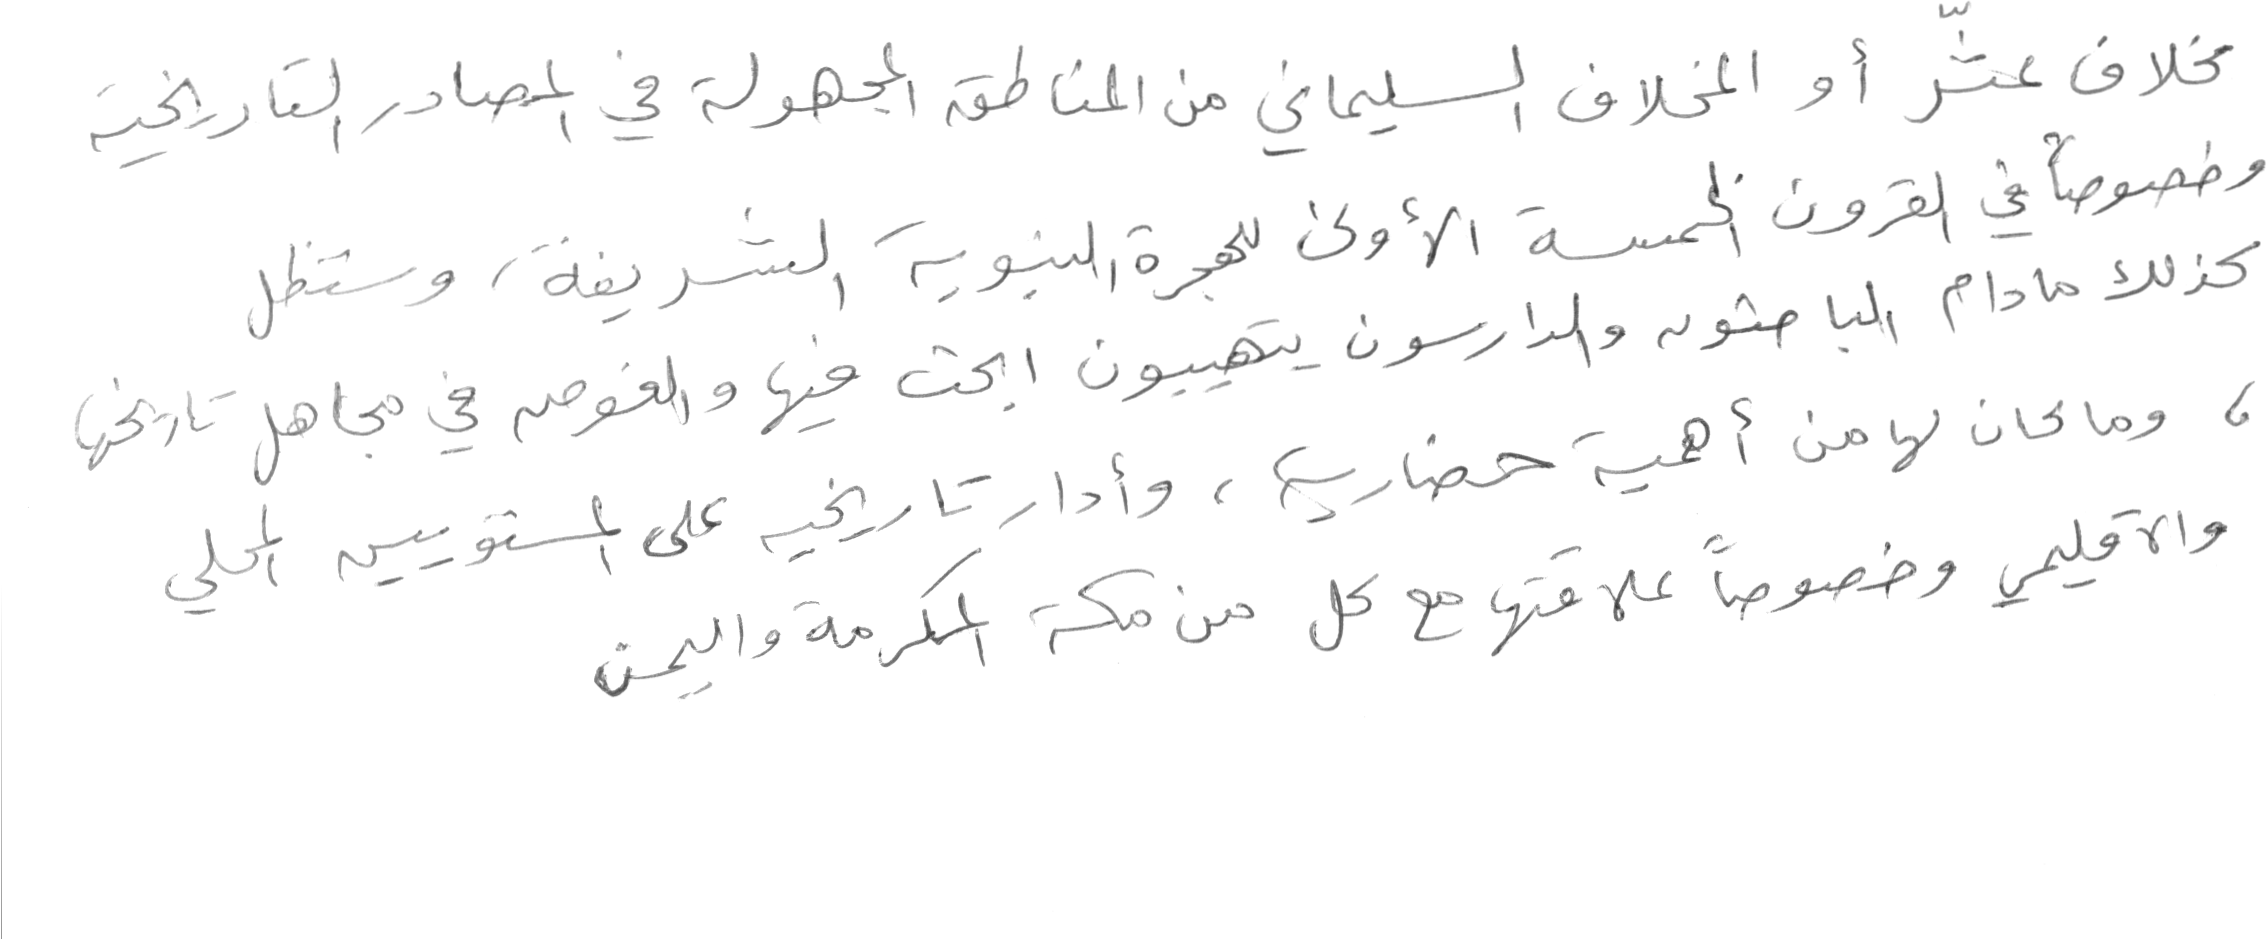 مخلاف عثّر أو المخلاف السليماني من المناطق المجهولة في المصادر التاريخية
وخصوصاً في القرون الخمسة الأولى للهجرة النبوية الشريفة، وستظل
كذلك مادام الباحثون والدارسون يتهيبون البحث فيها والغوص في مجاهل تاريخها
، وما كان لها من أهمية حضارية، وأدار تاريخية على المستويين المحلي
والاقليمي وخصوصاً علاقتها مع كل من مكة المكرمة واليمن